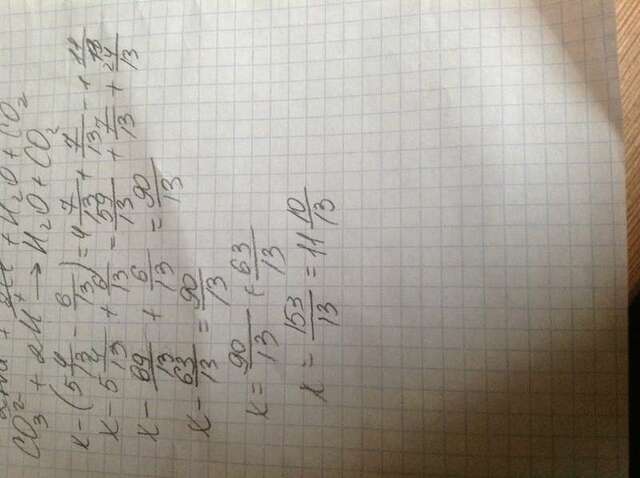 + H₂O + CO₂
CO₃²⁻ + 2H⁺ → H₂O + CO₂
x - (5 4/13 - 6/13) = 4 7/13 + 7/13 - 1 11/13
x - 5 4/13 + 6/13 = 59/13 + 7/13 + 24/13
x - 69/13 + 6/13 = 90/13
x - 63/13 = 90/13
x = 90/13 + 63/13
x = 153/13 = 11 10/13